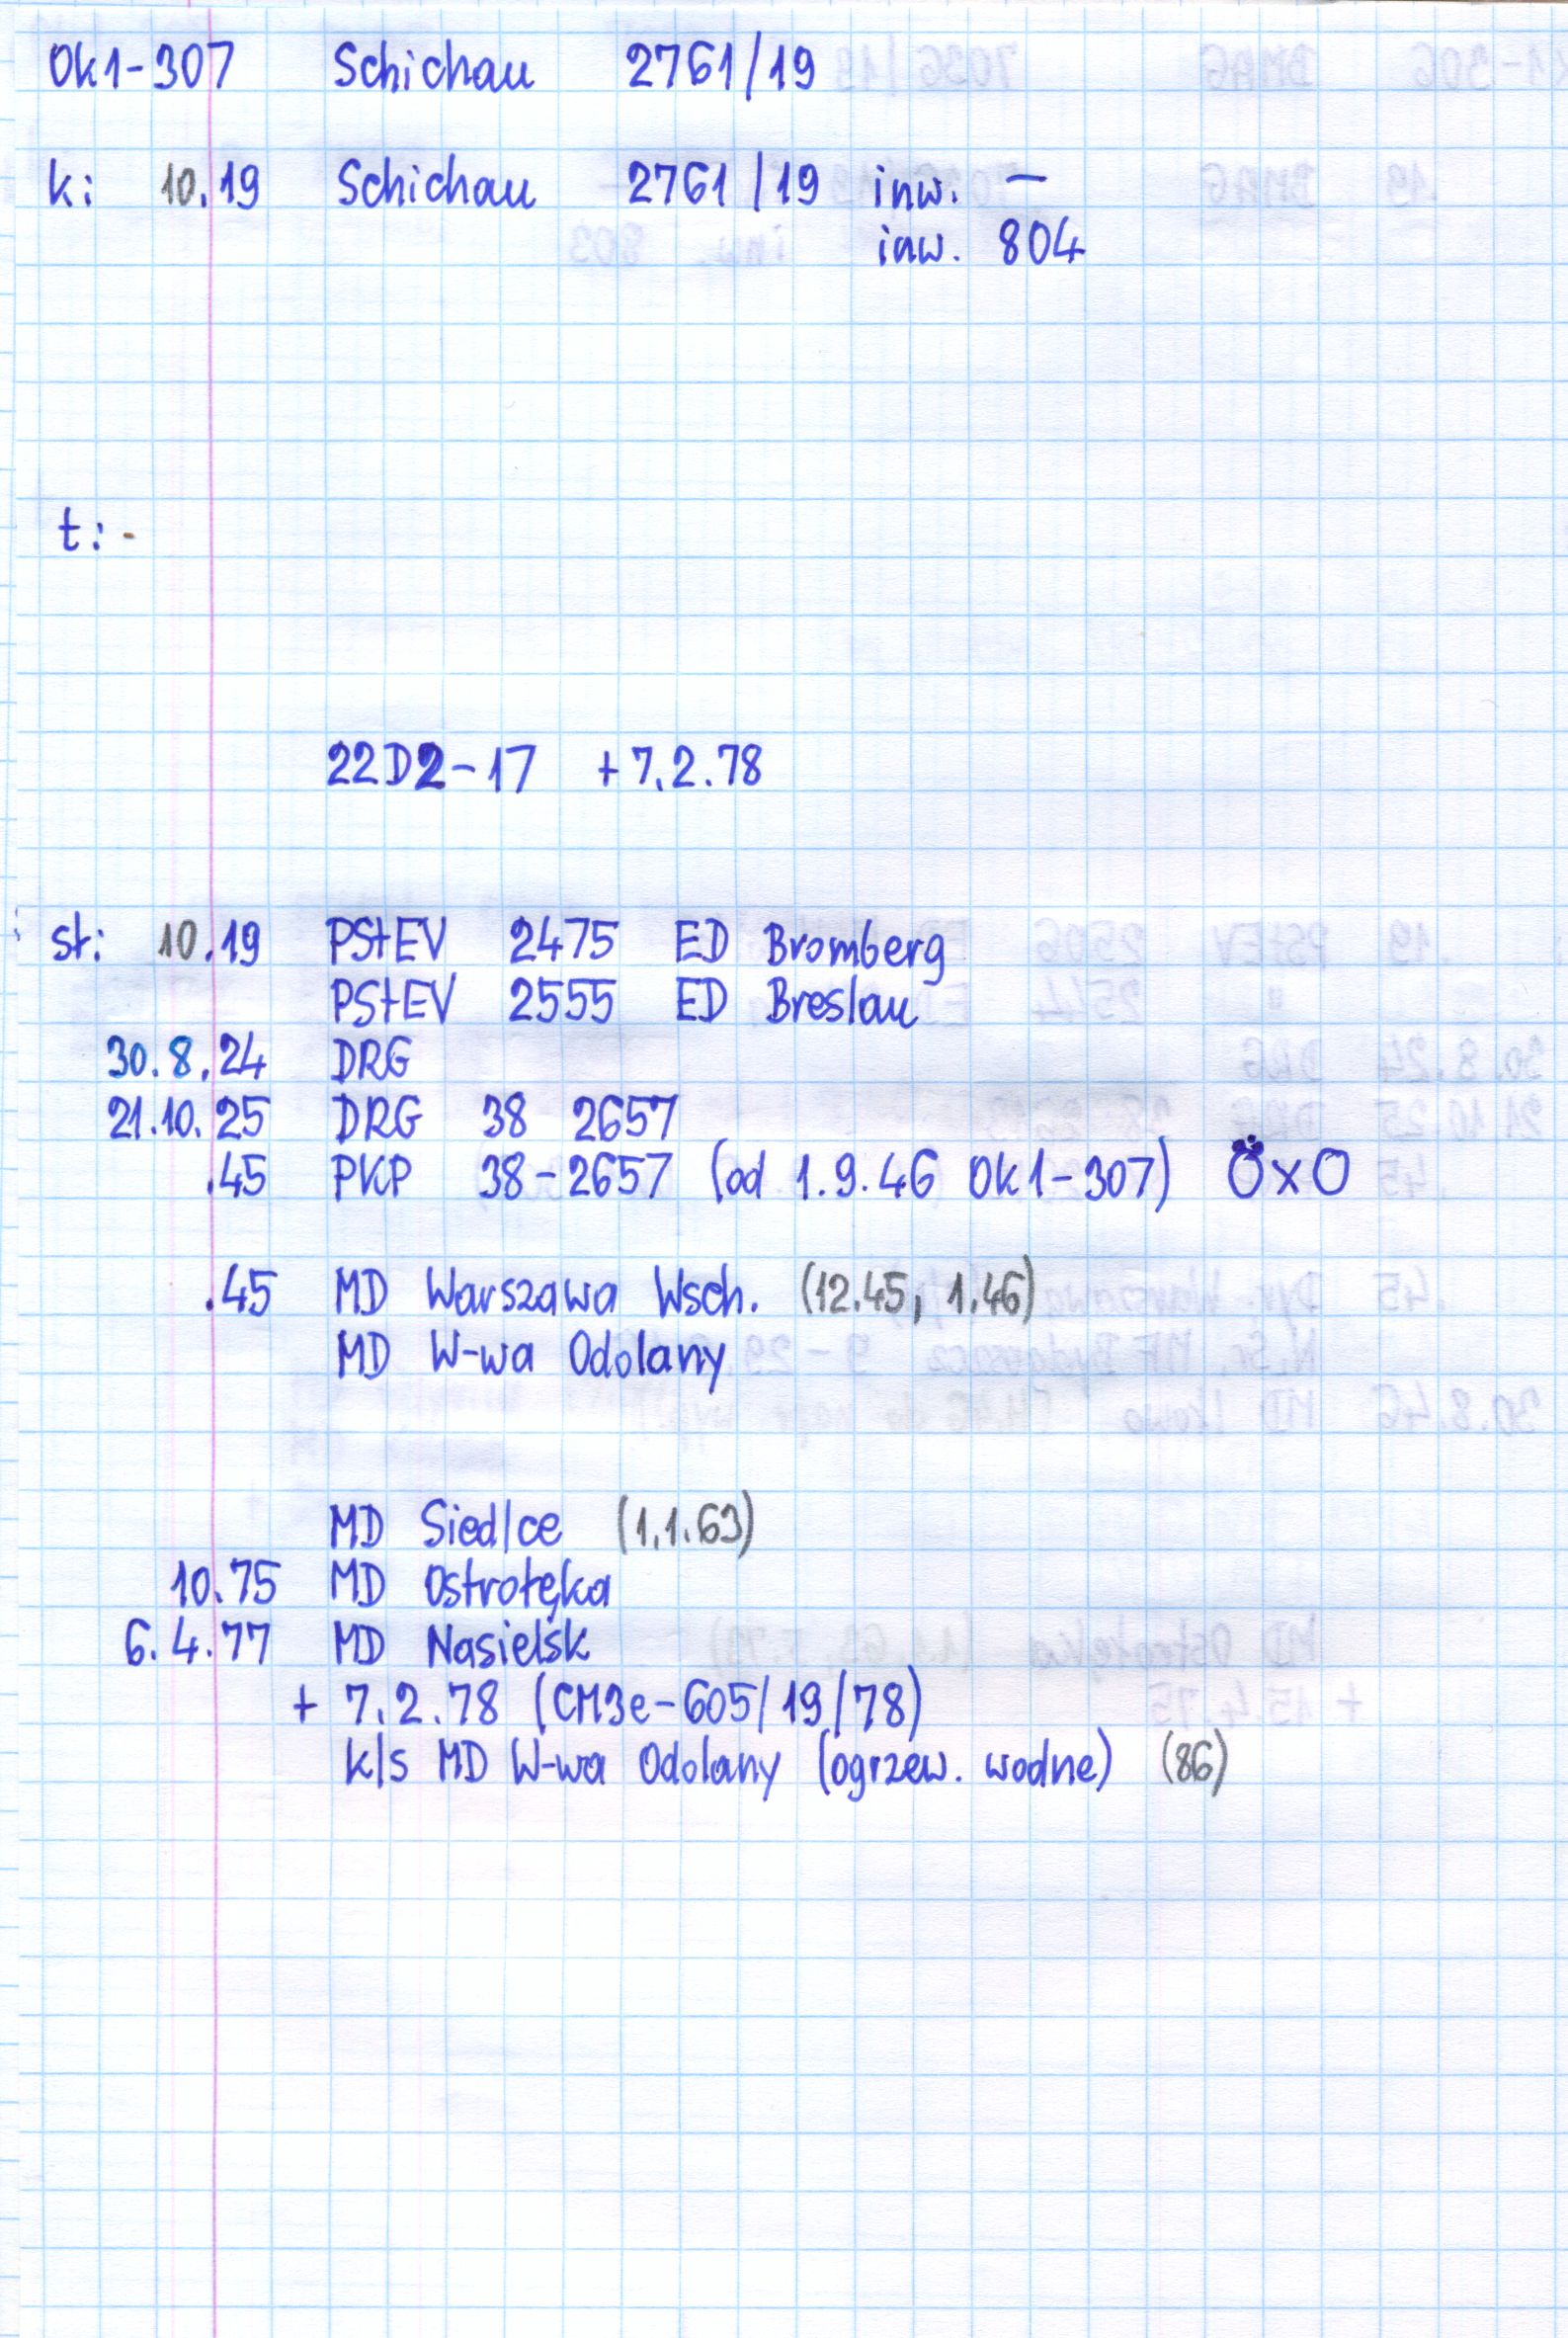 Ok1-307 Schichau 2761/19
k: 10.19 Schichau 2761/19 inw. -
inw. 804
t: -
22D2-17 +7.2.78
st: 10.19 PStEV 2475 ED Bromberg
PStEV 2555 ED Breslau
30.8.24 DRG
21.10.25 DRG 38 2657
.45 PKP 38-2657 (od 1.9.46 Ok1-307) ÖxO
.45 MD Warszawa Wsch. (12.45, 1.46)
MD W-wa Odolany
MD Siedlce (1.1.63)
10.75 MD Ostrołęka
6.4.77 MD Nasielsk
+ 7.2.78 (CM3e-605/19/78)
k/s MD W-wa Odolany (ogrzew. wodne) (86)